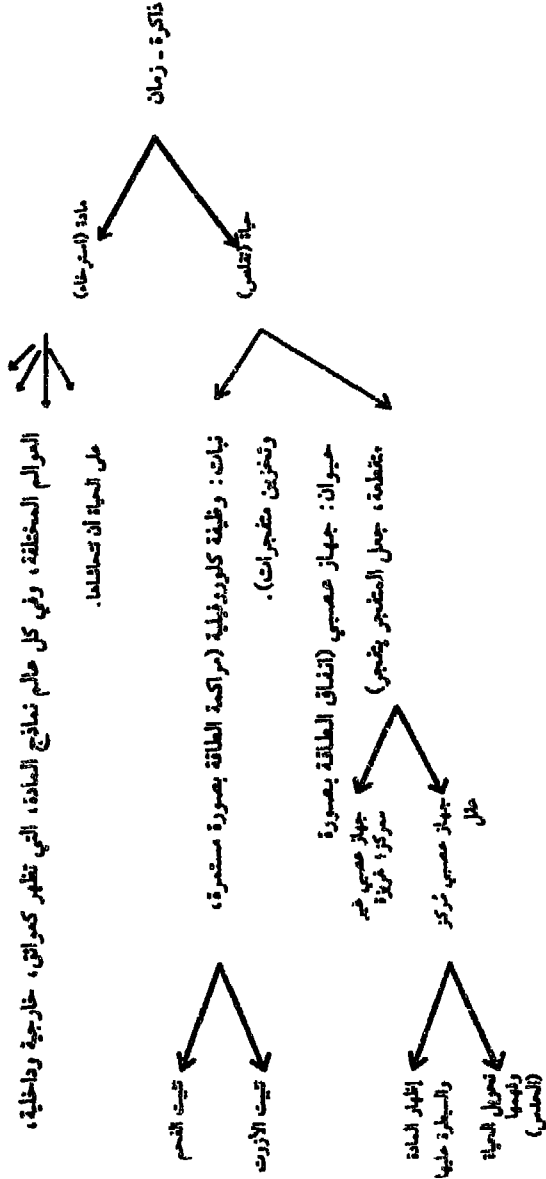 ذاكرة - زمان
مادة (استرخاء)
حياة (تقلص)
العوالم المختلفة، وفي كل عالم نماذج المادة، التي تظهر كعوائق، خارجية وداخلية،
على الحياة أن تتحاشاها.
نبات: وظيفة كلوروفيلية (مراكمة الطاقة بصورة مستمرة،
وتخزين متفجرات).
حيوان: جهاز عصبي (انفاق الطاقة بصورة
متقطعة، جعل المتفجر ينفجر)
جهاز عصبي غير
ممركز: غريزة
جهاز عصبي مركز
عقل
تثبيت الفحم
تثبيت الأزوت
إظهار المادة
والسيطرة عليها
تحويل الحياة
وفهمها
(الحدس)